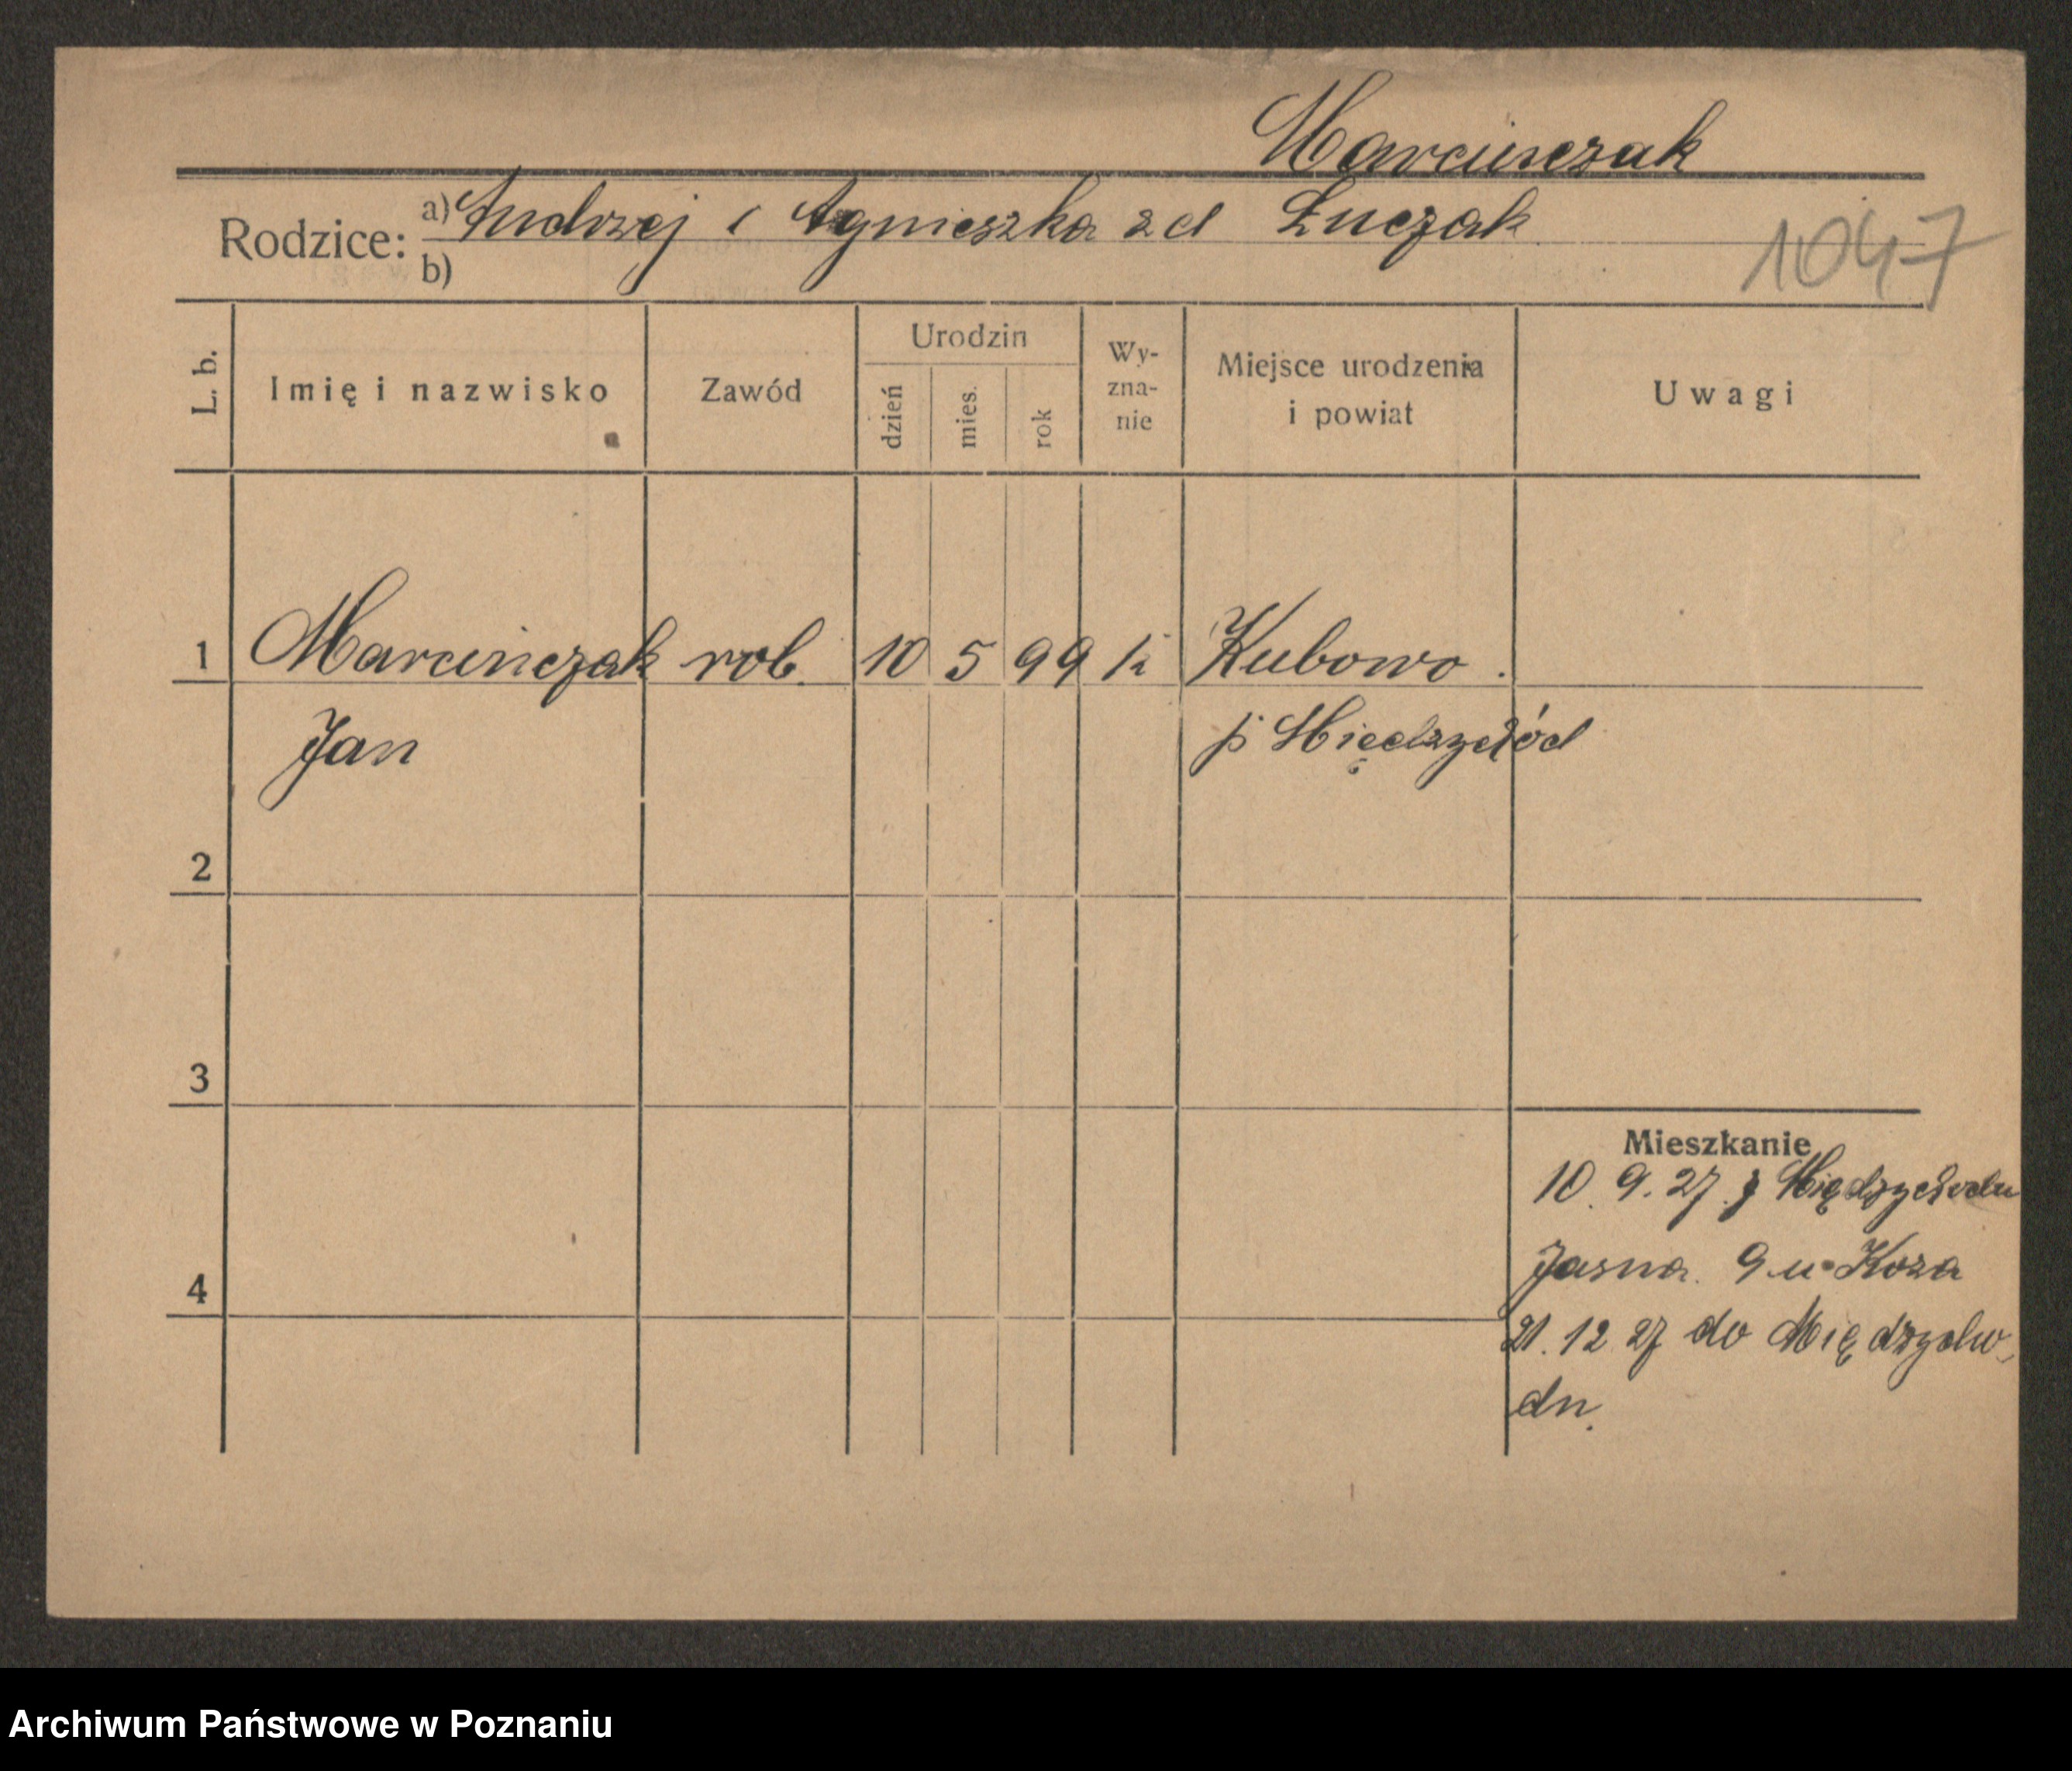 Marcińczak
Rodzice: a) Andrzej i Agnieszka zd Łuczak
b)
1047
L. b. Imię i nazwisko Zawód Urodzin dzień mies. rok Wy-zna-nie Miejsce urodzenia i powiat Uwagi
1 Marcińczak rob. 10 5 99 k Kubowo.
Jan p. Międzychód
2
3
Mieszkanie
10. 9. 27. z Międzychodu
4 Jasna. 9 u Koza
21. 12 27 do Międzycho-
du.
Archiwum Państwowe w Poznaniu